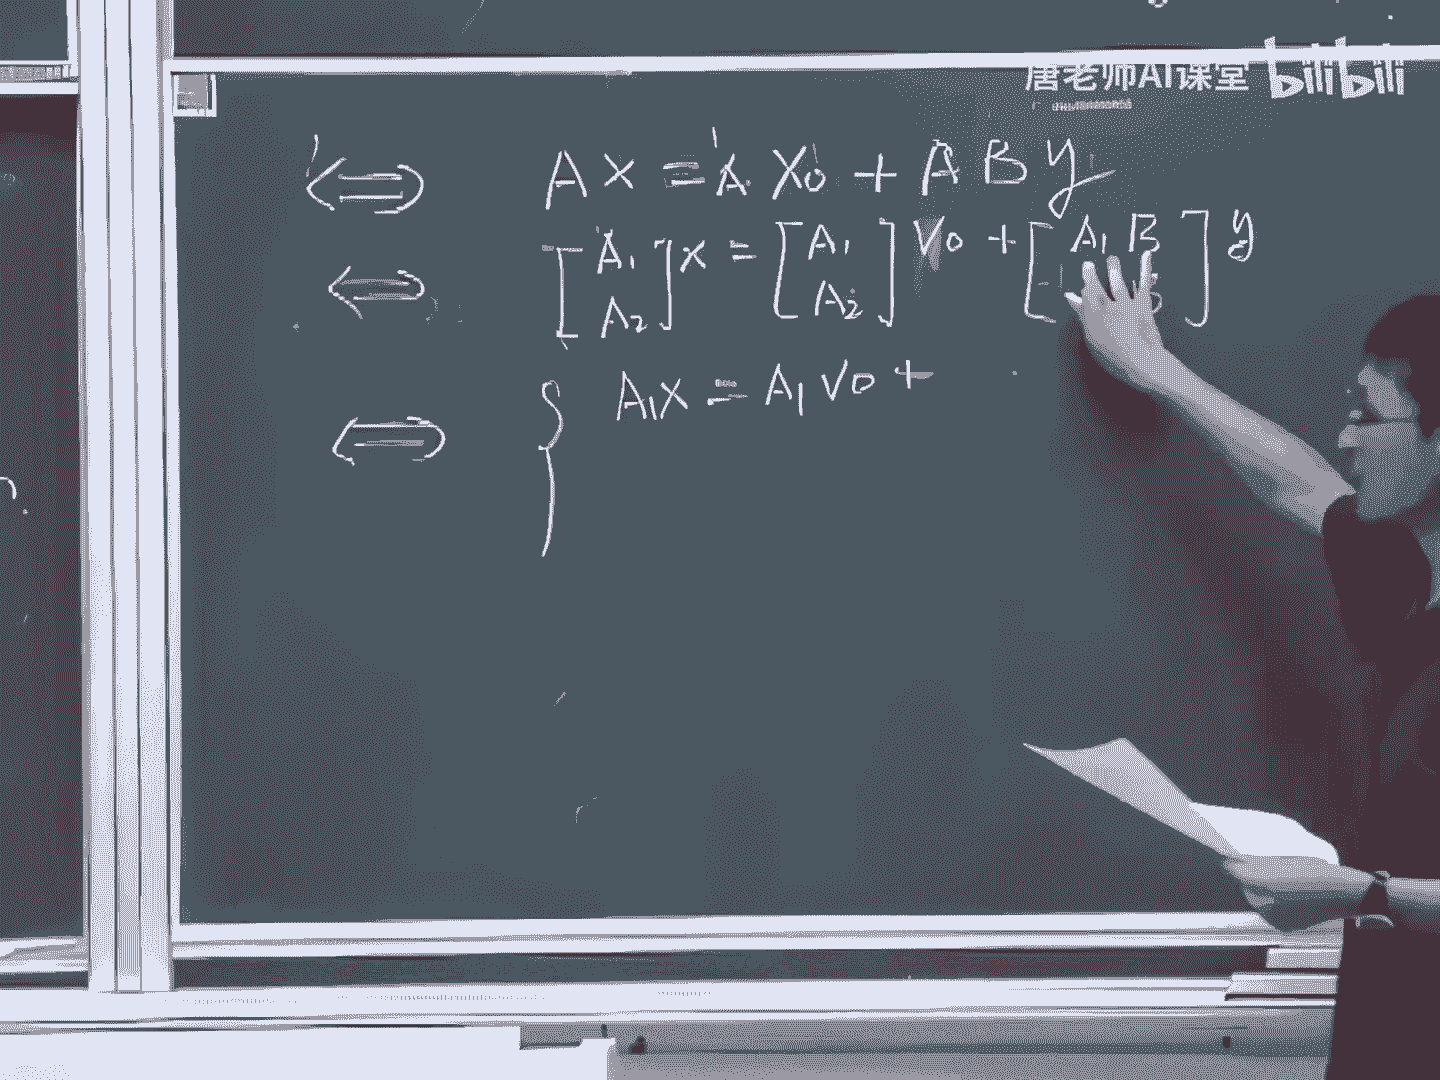 唐老师AI课堂 bilibili
⟺ AX = A X₀ + A B y
⟺ [A₁ A₂] x = [A₁ A₂] V₀ + [A₁ B] y
⟺ { A₁X = A₁V₀ +